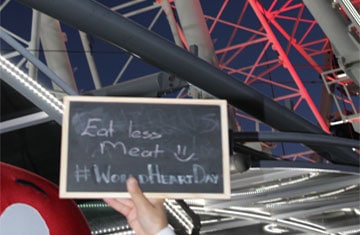 Eat less
Meat :)
#WORLDHEARTDAY